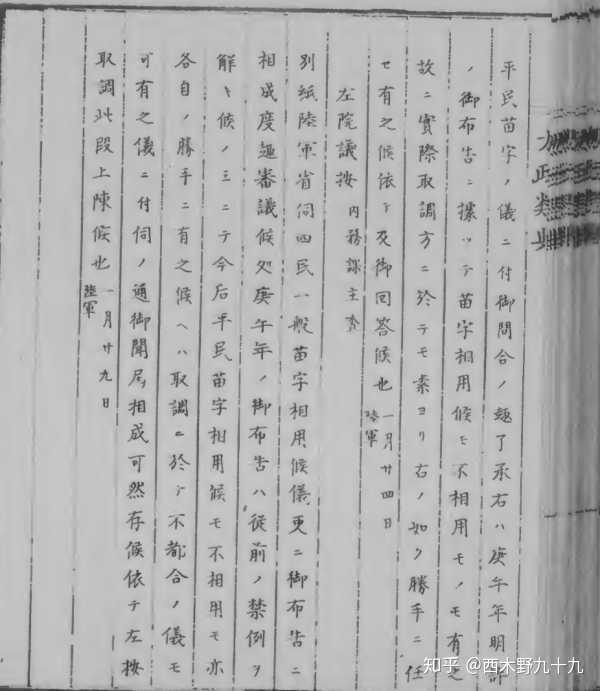 平民苗字ノ儀ニ付御問合ノ趣了承右ハ庚午年明許
ノ御布告ニ據ツテ苗字相用候モ不相用モノモ有之
故ニ實際取調方ニ於テモ素ヨリ右ノ如ク勝手ニ任
セ有之候依テ及御回答候也 一月廿四日 陸軍
左院議按 内務課主査
別紙陸軍省伺四民一般苗字相用候儀更ニ御布告ニ
相成度趣審議候処庚午年ノ御布告ハ従前ノ禁例ヲ
解キ候ノミニテ今后平民苗字相用候モ不相用モ亦
各自ノ勝手ニ有之候ヘハ取調ニ於テ不都合ノ儀モ
可有之儀ニ付伺ノ通御聞届相成可然存候依テ左按
取調此段上陳候也 一月廿九日 陸軍
太政類典
知乎 @西木野九十九